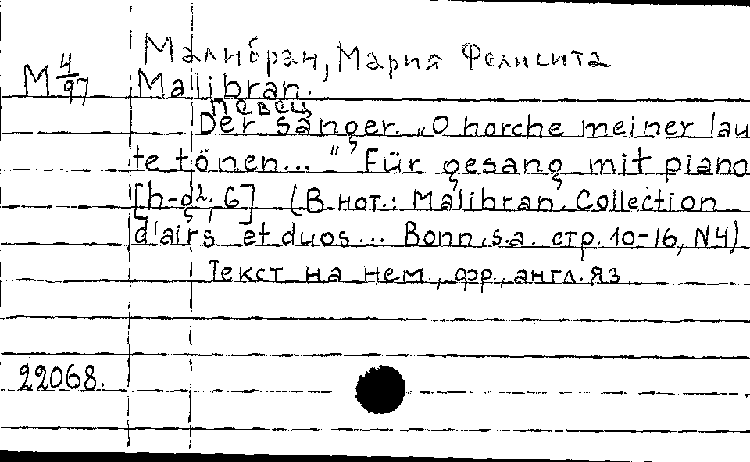 Малибран, Мария Фелисита
М 4/97 Malibran.
Певец
Der sänger. „O horche meiner lau
te tönen... " Für gesang mit piano
[h-g², G] (В нот.: Malibran. Collection
d'airs et duos... Bonn, s.a. стр. 10-16, N4)
Текст на нем, фр., англ. яз
22068.